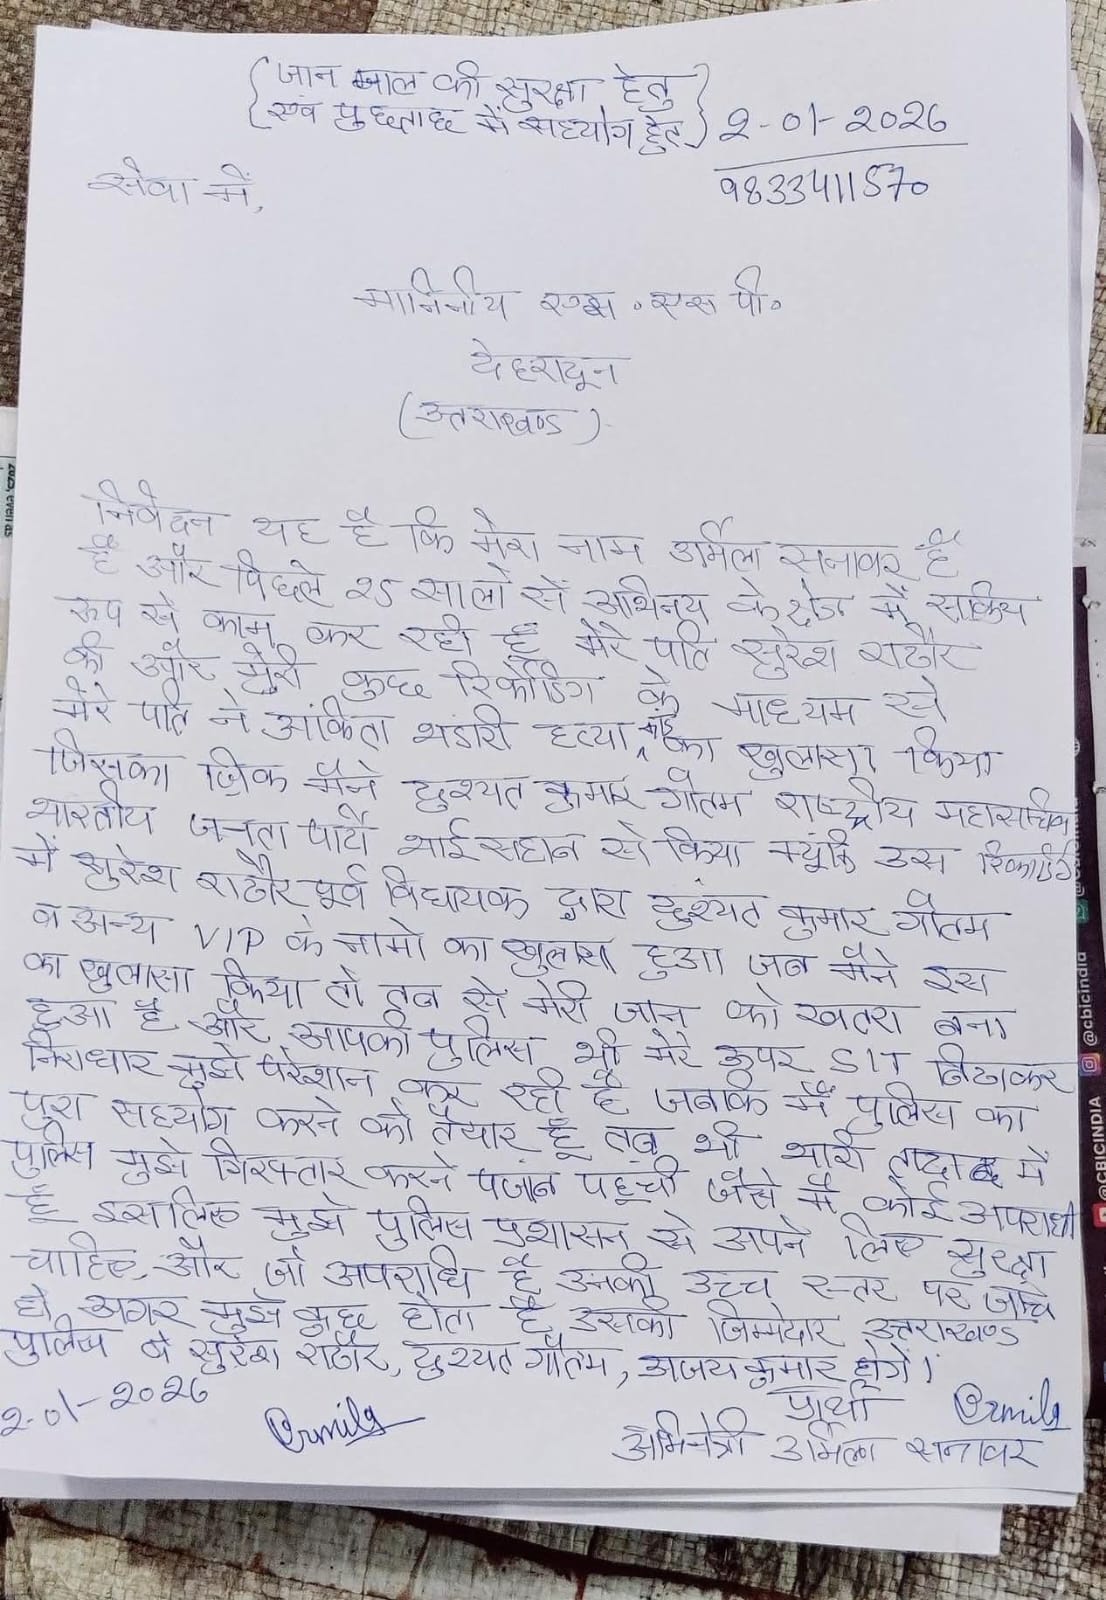 {जान माल की सुरक्षा हेतु}
{एवं पुछताछ में सहयोग हेतु} 2-01-2026
9833411570
सेवा में,
माननिीय एस. एस पी.
देहरादून
(उत्तराखण्ड)
निवेदन यह है कि मेरा नाम उर्मिला सनावर है
है और पिछले 25 सालों से अभिनय के क्षेत्र में सक्रिय
रूप से काम कर रही हूँ मेरे पति सुरेश राठौर
की और मेरी कुछ रिकोर्डिंग के माध्यम से
मेरे पति ने अंकिता भंडारी हत्या कांड का खुलासा किया
जिसका ज़िक्र मैंने दुश्यत कुमार गौतम राष्ट्रीय महासचिव
भारतीय जनता पार्टी से किया क्यूंकि उस रिकार्डिंग
में सुरेश राठौर पूर्व विधायक द्वारा दुश्यंत कुमार गौतम
व अन्य VIP के नामो का खुलासा हुआ जब मैंने इस
का खुलासा किया तो तब से मेरी जान को खतरा बना
हुआ है और आपकी पुलिस भी मेरे ऊपर SIT बिठाकर
निराधार मुझे परेशान कर रही है जबकि मैं पुलिस का
पुरा सहयोग करने को तैयार हूँ तब भी भारी तादाद में
पुलिस मुझे गिरफ्तार करने पंजाब पहूंची जैसे मैं कोई अपराधी
हूँ इसलिए मुझे पुलिस प्रशासन से अपने लिए सुरक्षा
चाहिए और जो अपराधि है उनकी उच्च स्तर पर जाँच
हो, अगर मुझे कुछ होता है उसका जिम्मेदार उत्तराखण्ड
पुलिस व सुरेश राठौर, दुश्यत गौतम, अजय कुमार होगें।
2-01-2026 प्रार्थी
Urmila Urmila
अभिनेत्री उर्मिला सनावर
@cbicindia
@CBICINDIA